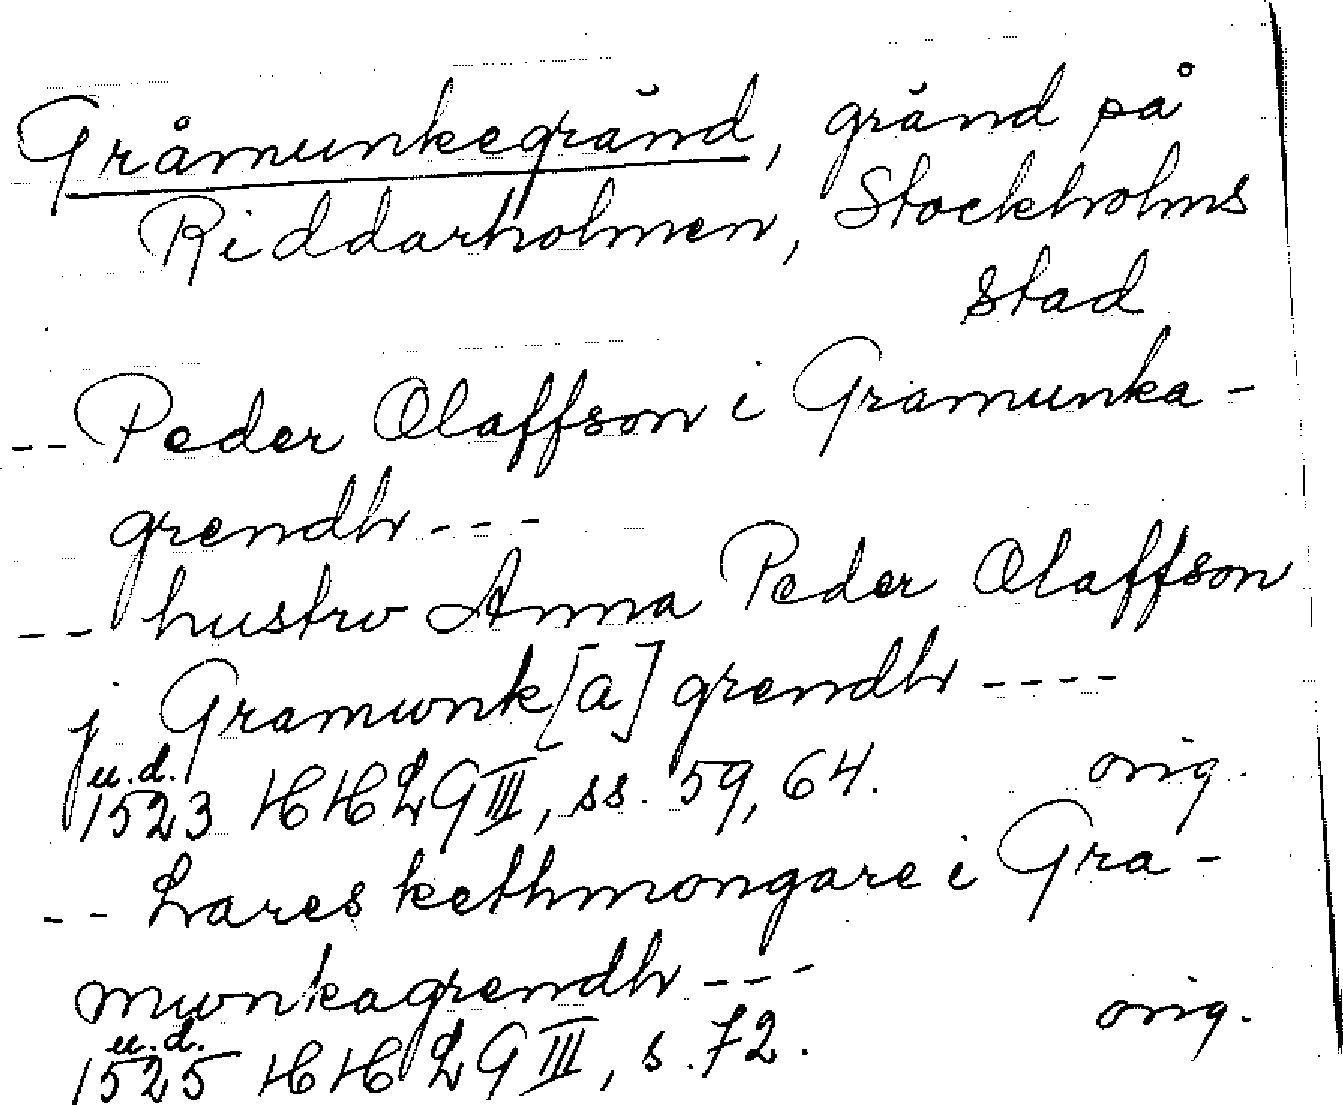 Gråmunkegränd, gränd på
Riddarholmen, Stockholms
stad
-- Peder Olaffson i Gramunka-
grendh ---
-- hustrv Anna Peder Olaffson
j Gramwnk[a]grendh ----
u.d.
1523 HHLG III, ss. 59, 64. orig.
-- Lares kethmongare i Gra-
mwnkagrendh ---
u.d.
1525 HHLG III, s. 72. orig.